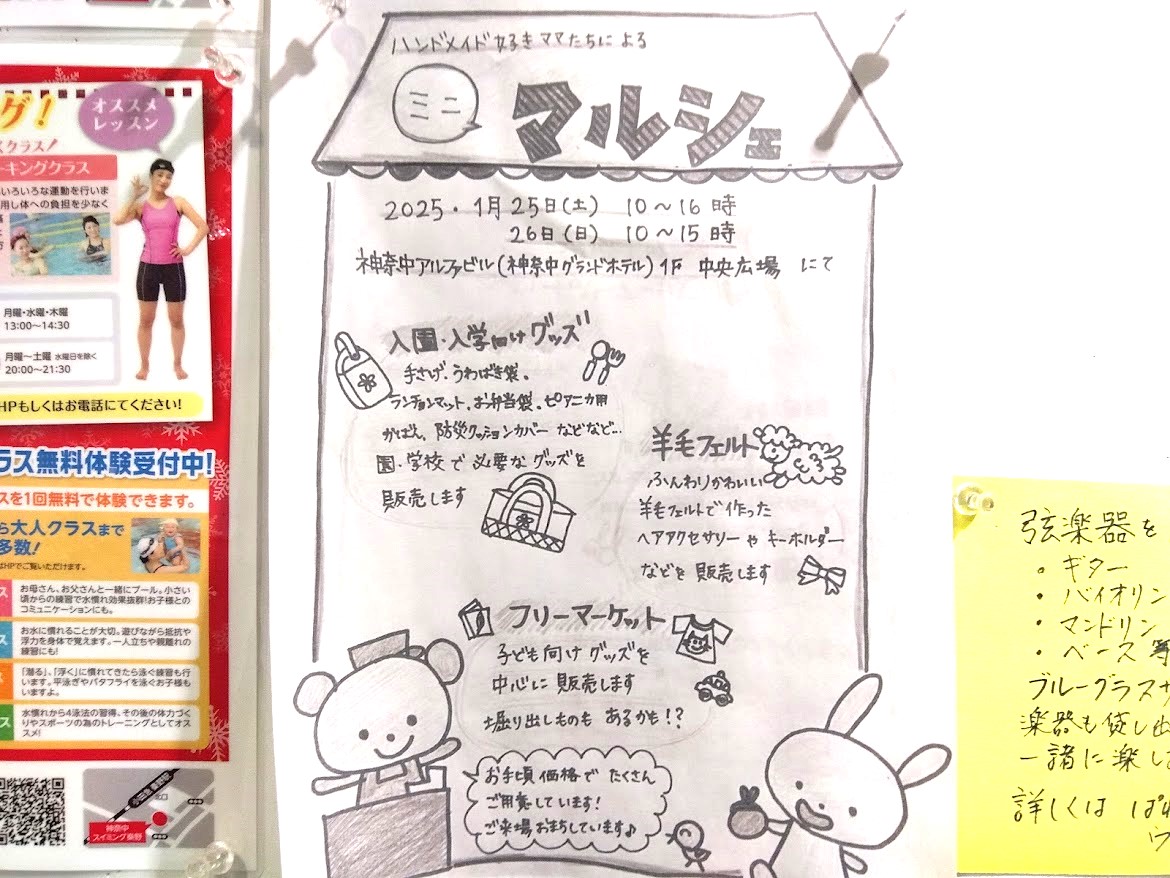 グ!
オススメ
レッスン
スクラス!
ーキングクラス
いろいろな運動を行いま
用し体への負担を少なく
月曜・水曜・木曜
13:00〜14:30
月曜〜土曜 水曜日を除く
20:00〜21:30
HPもしくはお電話にてください!
ラス無料体験受付中!
スを1回無料で体験できます。
ら大人クラスまで
多数!
はHPでご覧いただけます。
お母さん、お父さんと一緒にプール。小さい
頃からの練習で水慣れ効果抜群!お子様との
コミュニケーションにも。
お水に慣れることが大切。遊びながら抵抗や
浮力を身体で覚えます。一人立ちや親離れの
練習にも!
「潜る」、「浮く」に慣れてきたら泳ぐ練習も行
います。平泳ぎやバタフライを泳ぐお子様も
いますよ。
水慣れから4泳法の習得、その後の体力づく
りやスポーツの為のトレーニングとしてオス
スメ!
小田急秦野駅
神奈中
スイミング秦野
ハンドメイド好きママたちによる
ミニ
マルシェ
2025・1月25日(土) 10〜16時
26日(日) 10〜15時
神奈中アルファビル(神奈中グランドホテル)1F 中央広場 にて
入園・入学向けグッズ
手さげ、うわばき袋、
ランチョンマット、お弁当袋、ピアニカ用
かばん、防災クッションカバー などなど…
園・学校で必要なグッズを
販売します
羊毛フェルト
ふんわりかわいい
羊毛フェルトで作った
ヘアアクセサリーや キーホルダー
などを販売します
フリーマーケット
子ども向けグッズを
中心に販売します
堀り出しものも あるかも!?
お手頃価格で たくさん
ご用意しています!
ご来場お待ちしています♪
弦楽器を
・ギター
・バイオリン
・マンドリン
・ベース 等
ブルーグラスサ
楽器も貸し出
一緒に楽し
詳しくは